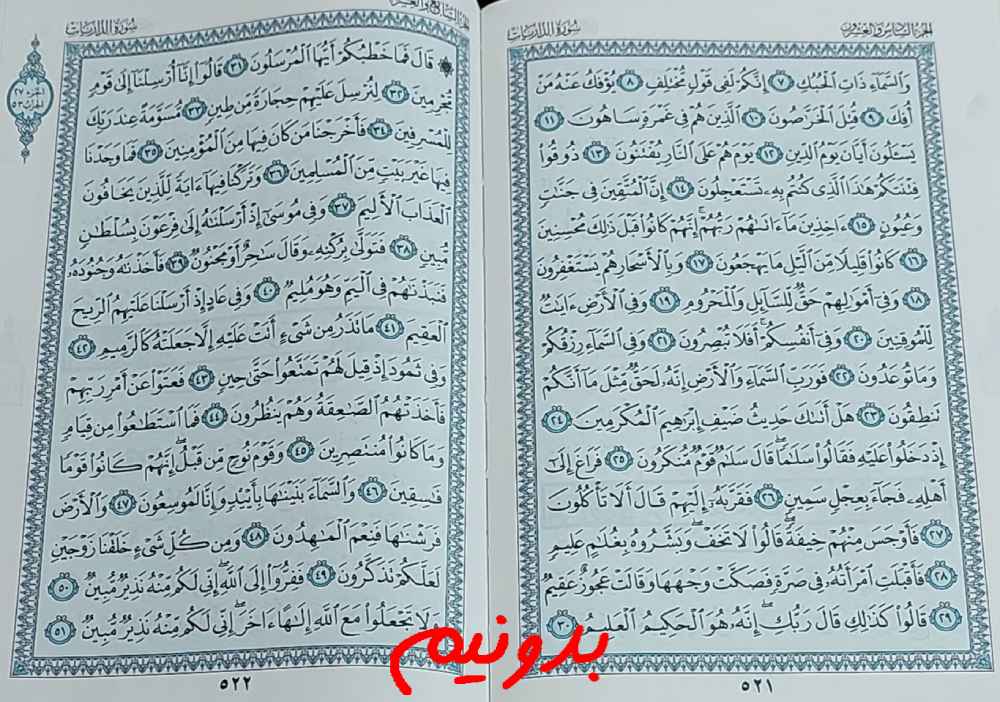 الجزء السادس والعشرون
سورة الذاريات
وَٱلسَّمَآءِ ذَاتِ ٱلْحُبُكِ ٧ إِنَّكُمْ لَفِى قَوْلٍ مُّخْتَلِفٍ ٨ يُؤْفَكُ عَنْهُ مَنْ
أُفِكَ ٩ قُتِلَ ٱلْخَرَّٰصُونَ ١٠ ٱلَّذِينَ هُمْ فِى غَمْرَةٍ سَاهُونَ ١١
يَسْـَٔلُونَ أَيَّانَ يَوْمُ ٱلدِّينِ ١٢ يَوْمَ هُمْ عَلَى ٱلنَّارِ يُفْتَنُونَ ١٣ ذُوقُوا۟
فِتْنَتَكُمْ هَٰذَا ٱلَّذِى كُنتُم بِهِۦ تَسْتَعْجِلُونَ ١٤ إِنَّ ٱلْمُتَّقِينَ فِى جَنَّٰتٍ
وَعُيُونٍ ١٥ ءَاخِذِينَ مَآ ءَاتَىٰهُمْ رَبُّهُمْ ۚ إِنَّهُمْ كَانُوا۟ قَبْلَ ذَٰلِكَ مُحْسِنِينَ
١٦ كَانُوا۟ قَلِيلًا مِّنَ ٱلَّيْلِ مَا يَهْجَعُونَ ١٧ وَبِٱلْأَسْحَارِ هُمْ يَسْتَغْفِرُونَ
١٨ وَفِىٓ أَمْوَٰلِهِمْ حَقٌّ لِّلسَّآئِلِ وَٱلْمَحْرُومِ ١٩ وَفِى ٱلْأَرْضِ ءَايَٰتٌ
لِّلْمُوقِنِينَ ٢٠ وَفِىٓ أَنفُسِكُمْ ۚ أَفَلَا تُبْصِرُونَ ٢١ وَفِى ٱلسَّمَآءِ رِزْقُكُمْ
وَمَا تُوعَدُونَ ٢٢ فَوَرَبِّ ٱلسَّمَآءِ وَٱلْأَرْضِ إِنَّهُۥ لَحَقٌّ مِّثْلَ مَآ أَنَّكُمْ
تَنطِقُونَ ٢٣ هَلْ أَتَىٰكَ حَدِيثُ ضَيْفِ إِبْرَٰهِيمَ ٱلْمُكْرَمِينَ ٢٤
إِذْ دَخَلُوا۟ عَلَيْهِ فَقَالُوا۟ سَلَٰمًا ۖ قَالَ سَلَٰمٌ قَوْمٌ مُّنكَرُونَ ٢٥ فَرَاغَ إِلَىٰٓ
أَهْلِهِۦ فَجَآءَ بِعِجْلٍ سَمِينٍ ٢٦ فَقَرَّبَهُۥٓ إِلَيْهِمْ قَالَ أَلَا تَأْكُلُونَ
٢٧ فَأَوْجَسَ مِنْهُمْ خِيفَةً ۖ قَالُوا۟ لَا تَخَفْ ۖ وَبَشَّرُوهُ بِغُلَٰمٍ عَلِيمٍ
٢٨ فَأَقْبَلَتِ ٱمْرَأَتُهُۥ فِى صَرَّةٍ فَصَكَّتْ وَجْهَهَا وَقَالَتْ عَجُوزٌ عَقِيمٌ
٢٩ قَالُوا۟ كَذَٰلِكِ قَالَ رَبُّكِ ۖ إِنَّهُۥ هُوَ ٱلْحَكِيمُ ٱلْعَلِيمُ ٣٠
٥٢١
الجزء السابع والعشرون
سورة الذاريات
الجزء ٢٧
الحزب ٥٣
۞ قَالَ فَمَا خَطْبُكُمْ أَيُّهَا ٱلْمُرْسَلُونَ ٣١ قَالُوٓا۟ إِنَّآ أُرْسِلْنَآ إِلَىٰ قَوْمٍ
مُّجْرِمِينَ ٣٢ لِنُرْسِلَ عَلَيْهِمْ حِجَارَةً مِّن طِينٍ ٣٣ مُّسَوَّمَةً عِندَ رَبِّكَ
لِلْمُسْرِفِينَ ٣٤ فَأَخْرَجْنَا مَن كَانَ فِيهَا مِنَ ٱلْمُؤْمِنِينَ ٣٥ فَمَا وَجَدْنَا
فِيهَا غَيْرَ بَيْتٍ مِّنَ ٱلْمُسْلِمِينَ ٣٦ وَتَرَكْنَا فِيهَآ ءَايَةً لِّلَّذِينَ يَخَافُونَ
ٱلْعَذَابَ ٱلْأَلِيمَ ٣٧ وَفِى مُوسَىٰٓ إِذْ أَرْسَلْنَٰهُ إِلَىٰ فِرْعَوْنَ بِسُلْطَٰنٍ
مُّبِينٍ ٣٨ فَتَوَلَّىٰ بِرُكْنِهِۦ وَقَالَ سَٰحِرٌ أَوْ مَجْنُونٌ ٣٩ فَأَخَذْنَٰهُ وَجُنُودَهُۥ
فَنَبَذْنَٰهُمْ فِى ٱلْيَمِّ وَهُوَ مُلِيمٌ ٤٠ وَفِى عَادٍ إِذْ أَرْسَلْنَا عَلَيْهِمُ ٱلرِّيحَ
ٱلْعَقِيمَ ٤١ مَا تَذَرُ مِن شَىْءٍ أَتَتْ عَلَيْهِ إِلَّا جَعَلَتْهُ كَٱلرَّمِيمِ ٤٢
وَفِى ثَمُودَ إِذْ قِيلَ لَهُمْ تَمَتَّعُوا۟ حَتَّىٰ حِينٍ ٤٣ فَعَتَوْا۟ عَنْ أَمْرِ رَبِّهِمْ
فَأَخَذَتْهُمُ ٱلصَّٰعِقَةُ وَهُمْ يَنظُرُونَ ٤٤ فَمَا ٱسْتَطَٰعُوا۟ مِن قِيَامٍ
وَمَا كَانُوا۟ مُنتَصِرِينَ ٤٥ وَقَوْمَ نُوحٍ مِّن قَبْلُ ۖ إِنَّهُمْ كَانُوا۟ قَوْمًا
فَٰسِقِينَ ٤٦ وَٱلسَّمَآءَ بَنَيْنَٰهَا بِأَيْي۟دٍ وَإِنَّا لَمُوسِعُونَ ٤٧ وَٱلْأَرْضَ
فَرَشْنَٰهَا فَنِعْمَ ٱلْمَٰهِدُونَ ٤٨ وَمِن كُلِّ شَىْءٍ خَلَقْنَا زَوْجَيْنِ
لَعَلَّكُمْ تَذَكَّرُونَ ٤٩ فَفِرُّوٓا۟ إِلَى ٱللَّهِ ۖ إِنِّى لَكُم مِّنْهُ نَذِيرٌ مُّبِينٌ ٥٠
وَلَا تَجْعَلُوا۟ مَعَ ٱللَّهِ إِلَٰهًا ءَاخَرَ ۖ إِنِّى لَكُم مِّنْهُ نَذِيرٌ مُّبِينٌ ٥١
٥٢٢
بدونيم